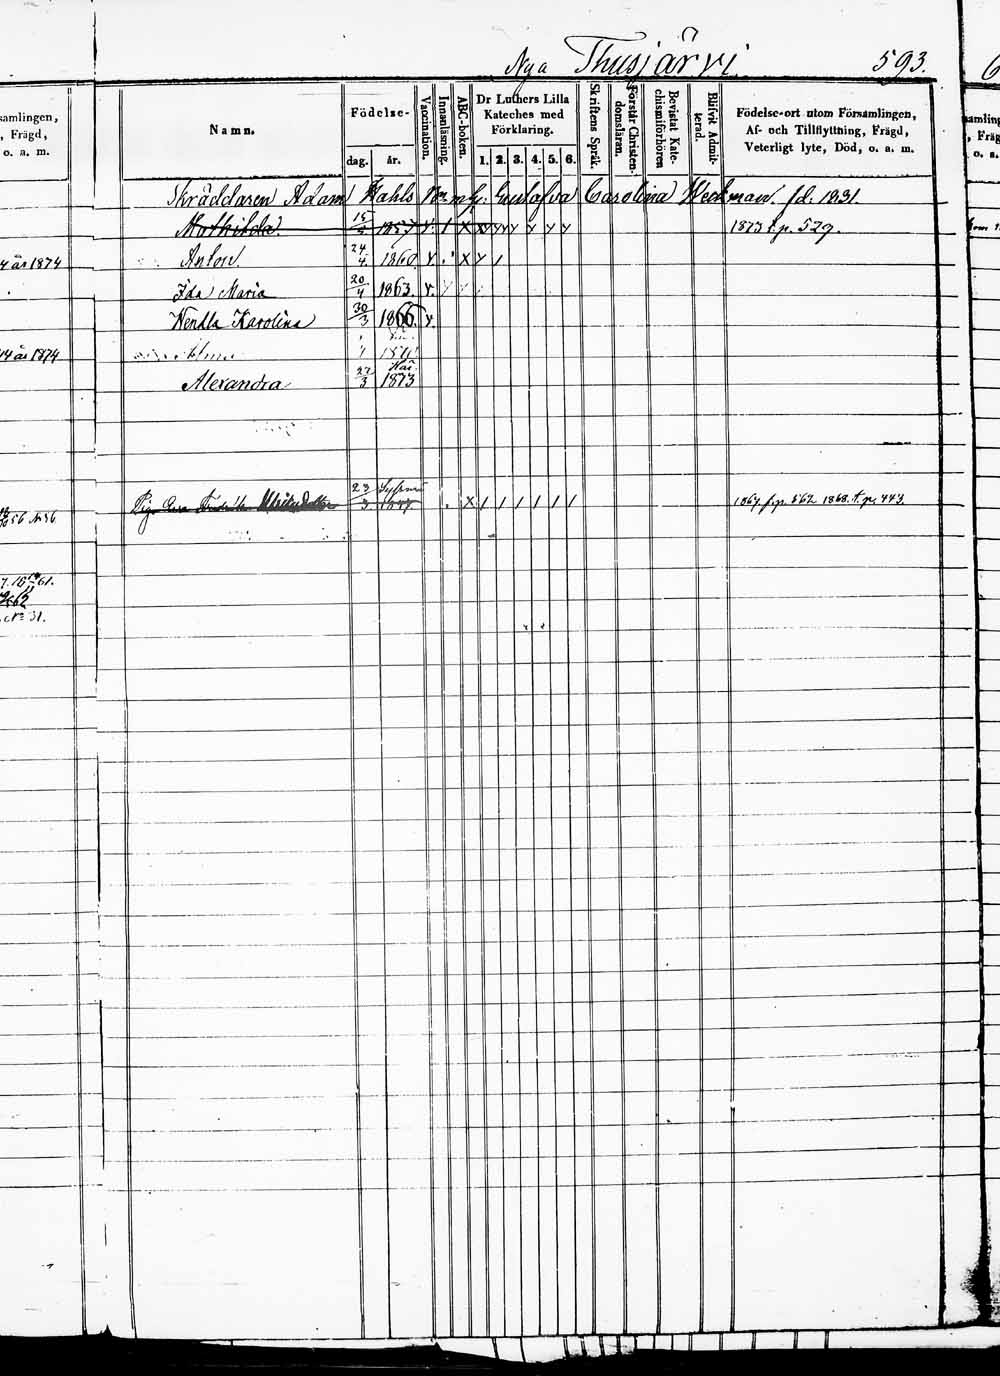 Nya Thusjärvi 593.
samlingen,
, Frägd,
o. a. m.
Namn.
Födelse-
dag. år.
Vaccination.
Innanläsning.
ABC-boken.
Dr Luthers Lilla
Kateches med
Förklaring.
1. 2. 3. 4. 5. 6.
Skriftens Språk.
Förstår Christen-
domsläran.
Bevistat Kate-
chismiförhören
Blifvit Admit-
terad.
Födelse-ort utom Församlingen,
Af- och Tillflyttning, Frägd,
Veterligt lyte, Död, o. a. m.
Skräddaren Adam Gustafva Carolina Weckman. fd. 1831.
Mathilda 15 1857 1873 t. p. 529.
4 år 1874 Anton 24/4 1860
Ida Maria 20/4 1863.
Wendla Karolina 30/3 1866
14 år 1874
Alexandra 22/3 1873
Piga 23/3 1867. fr. p. 562 1868. t. p. 443.
56 No 56
No 31.